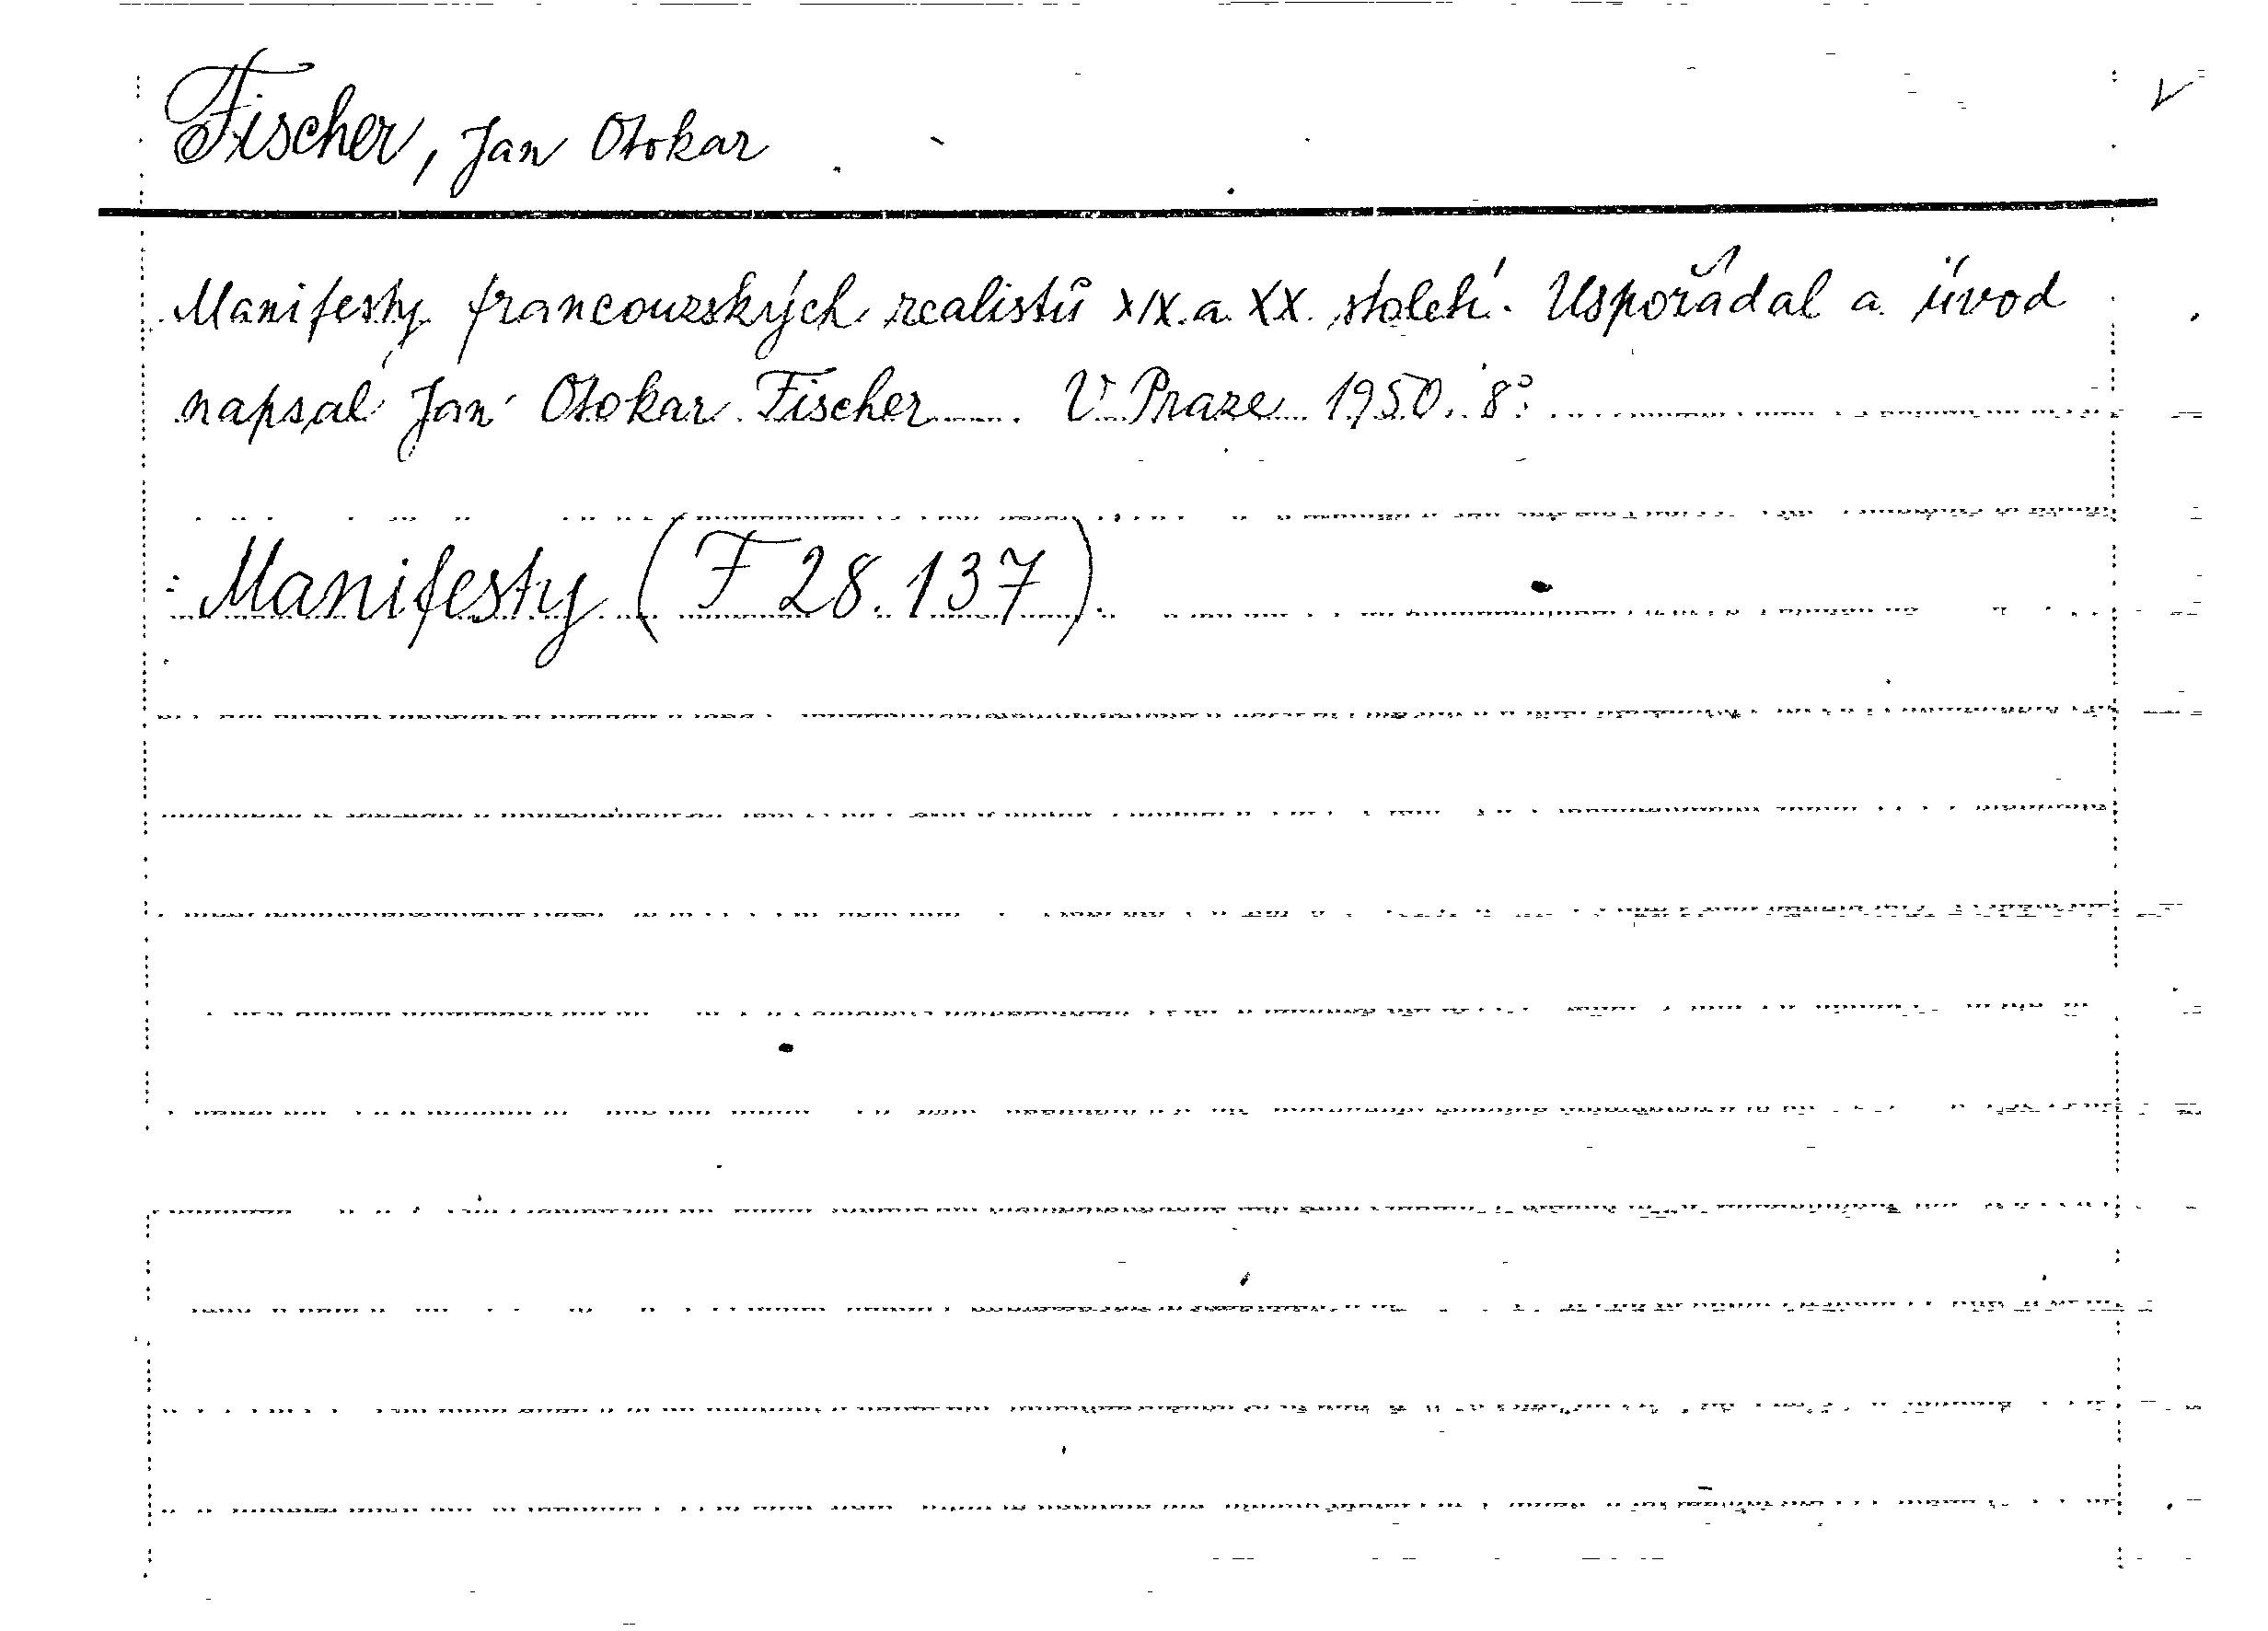 Fischer, Jan Otokar
Manifesty francouzských realistů XIX. a XX. století. Uspořádal a úvod
napsal Jan Otokar Fischer ..... V Praze 1950. 8°.
: Manifesty (F 28.137).